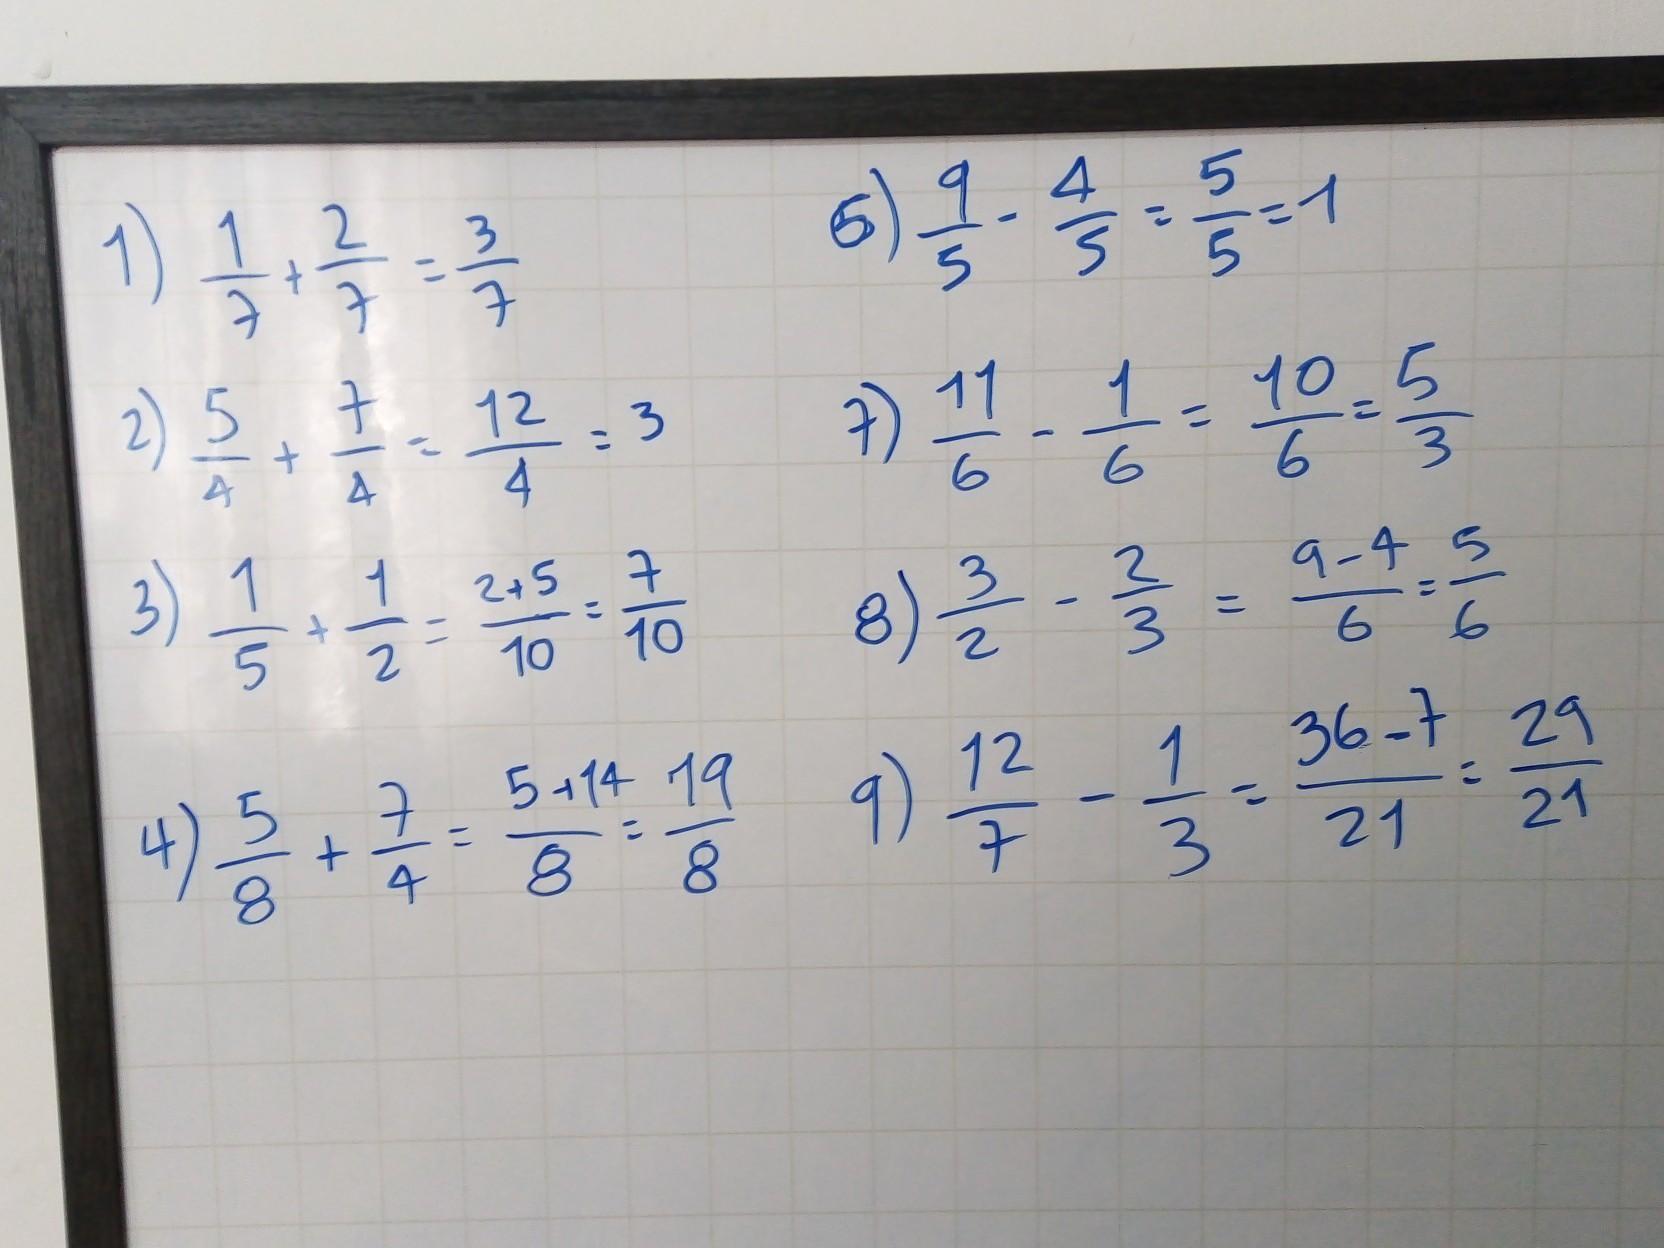 1) 1/7 + 2/7 = 3/7
2) 5/4 + 7/4 = 12/4 = 3
3) 1/5 + 1/2 = (2+5)/10 = 7/10
4) 5/8 + 7/4 = (5+14)/8 = 19/8
6) 9/5 - 4/5 = 5/5 = 1
7) 11/6 - 1/6 = 10/6 = 5/3
8) 3/2 - 2/3 = (9-4)/6 = 5/6
9) 12/7 - 1/3 = (36-7)/21 = 29/21